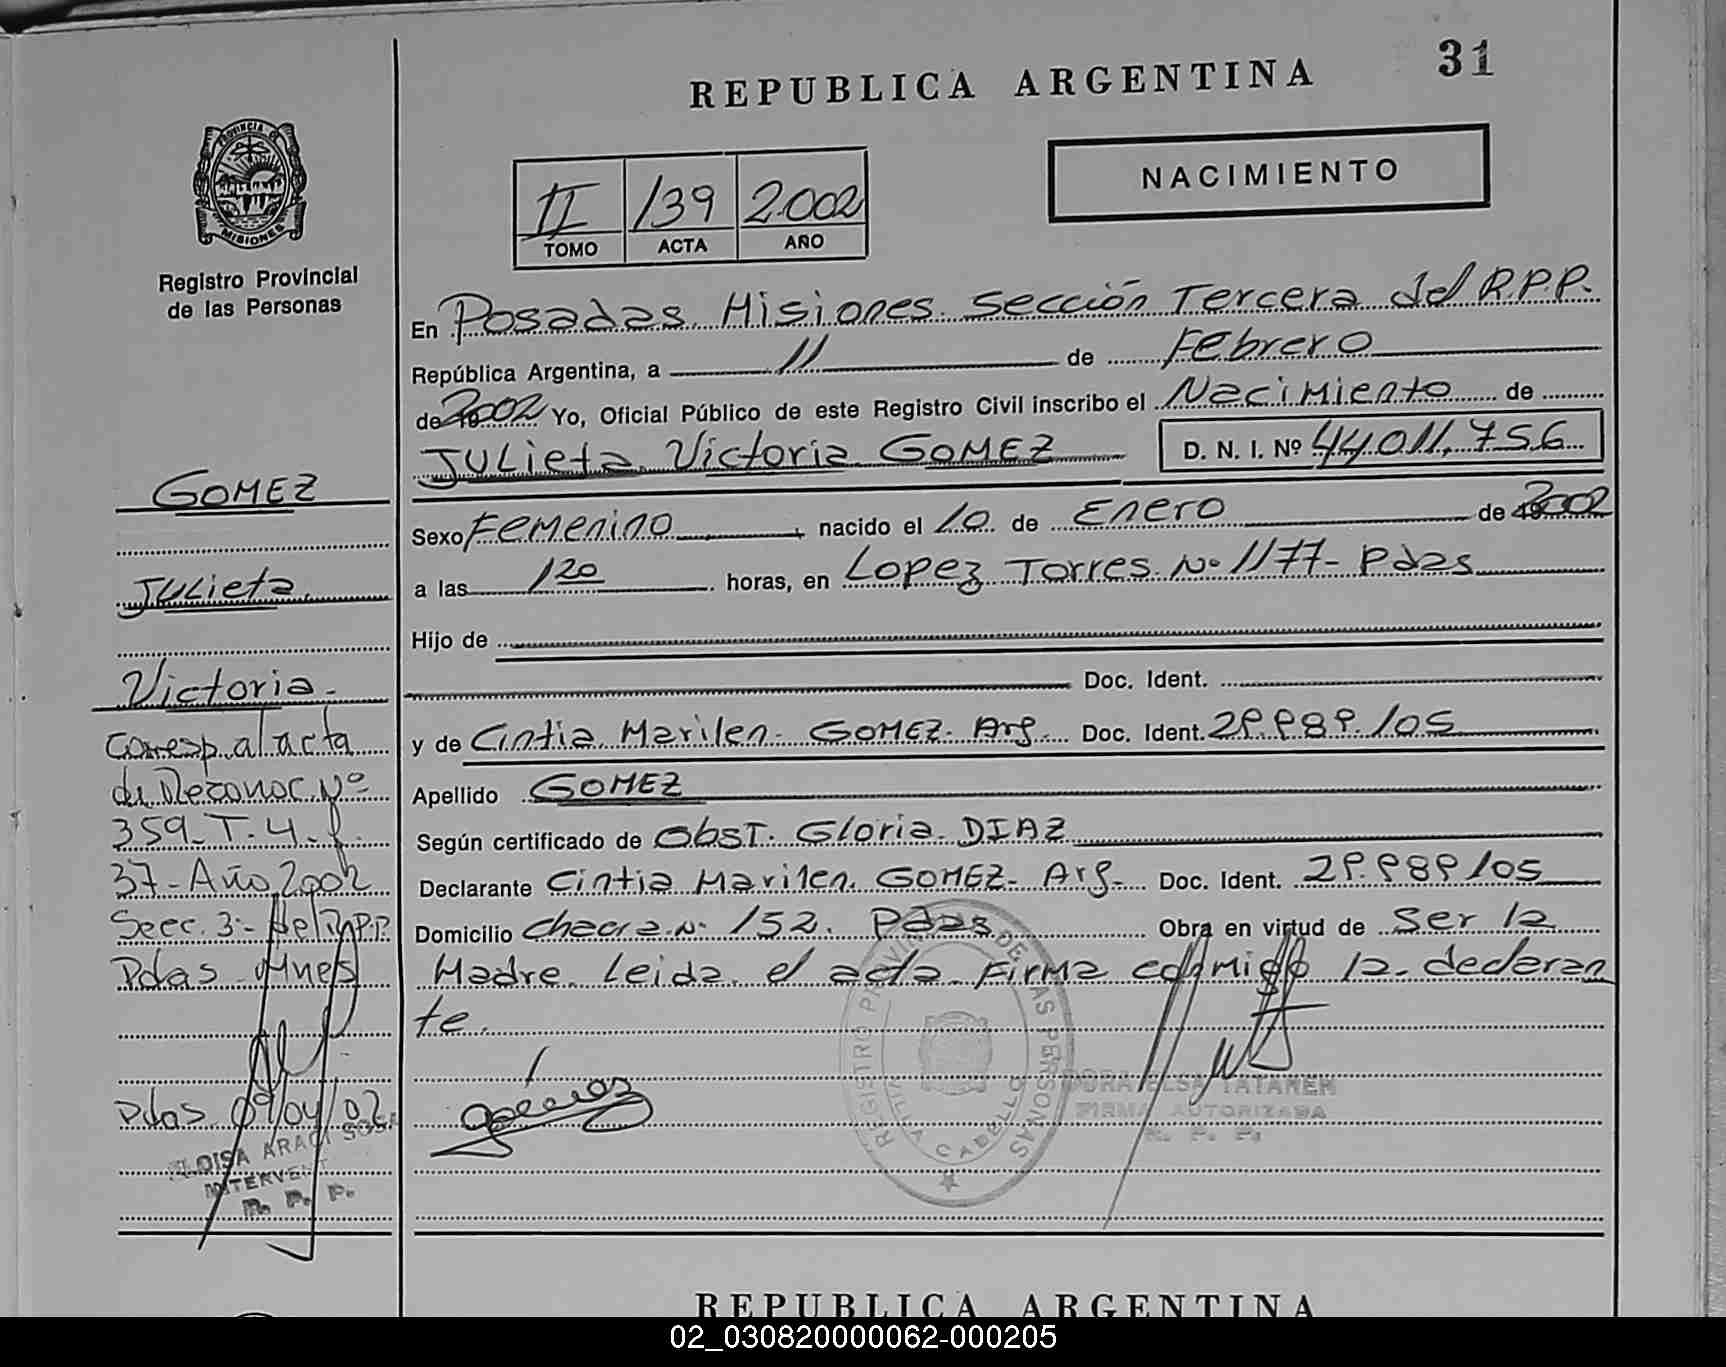 REPUBLICA ARGENTINA
31
NACIMIENTO
II /39 2.002
TOMO ACTA AÑO
PROVINCIA DE
MISIONES
Registro Provincial
de las Personas
En Posadas Misiones Sección Tercera del R.P.P.
República Argentina, a 11 de Febrero
de 2002 Yo, Oficial Público de este Registro Civil inscribo el Nacimiento de
Julieta Victoria GOMEZ D. N. I. Nº 44.011.756
Sexo Femenino nacido el 10 de Enero de 2002
a las 120 horas, en Lopez Torres Nº 1177- Pdas
Hijo de
Doc. Ident.
y de Cintia Marilen GOMEZ- Arg. Doc. Ident. 29.989.105
Apellido GOMEZ
Según certificado de Obst. Gloria DIAZ
Declarante Cintia Marilen GOMEZ- Arg- Doc. Ident. 29.989105
Domicilio chacra Nº 152. Pdas Obra en virtud de Ser la
Madre. Leida el acta Firma conmigo la declaran
te.
GOMEZ
Julieta
Victoria-
Corresp. al acta
de Reconoc Nº
359- T. 4- f.
37- Año 2002
Secc. 3º- del R.P.P.
Pdas Mnes
Pdas 09/04/02
ELOISA ARACI SOSA
INTERVENT
R. P. P.
REGISTRO PROVINCIAL DE LAS PERSONAS
VILLA CABELLO
DORA ELSA TATAREN
FIRMA AUTORIZADA
R. P. P.
REPUBLICA ARGENTINA
02_030820000062-000205